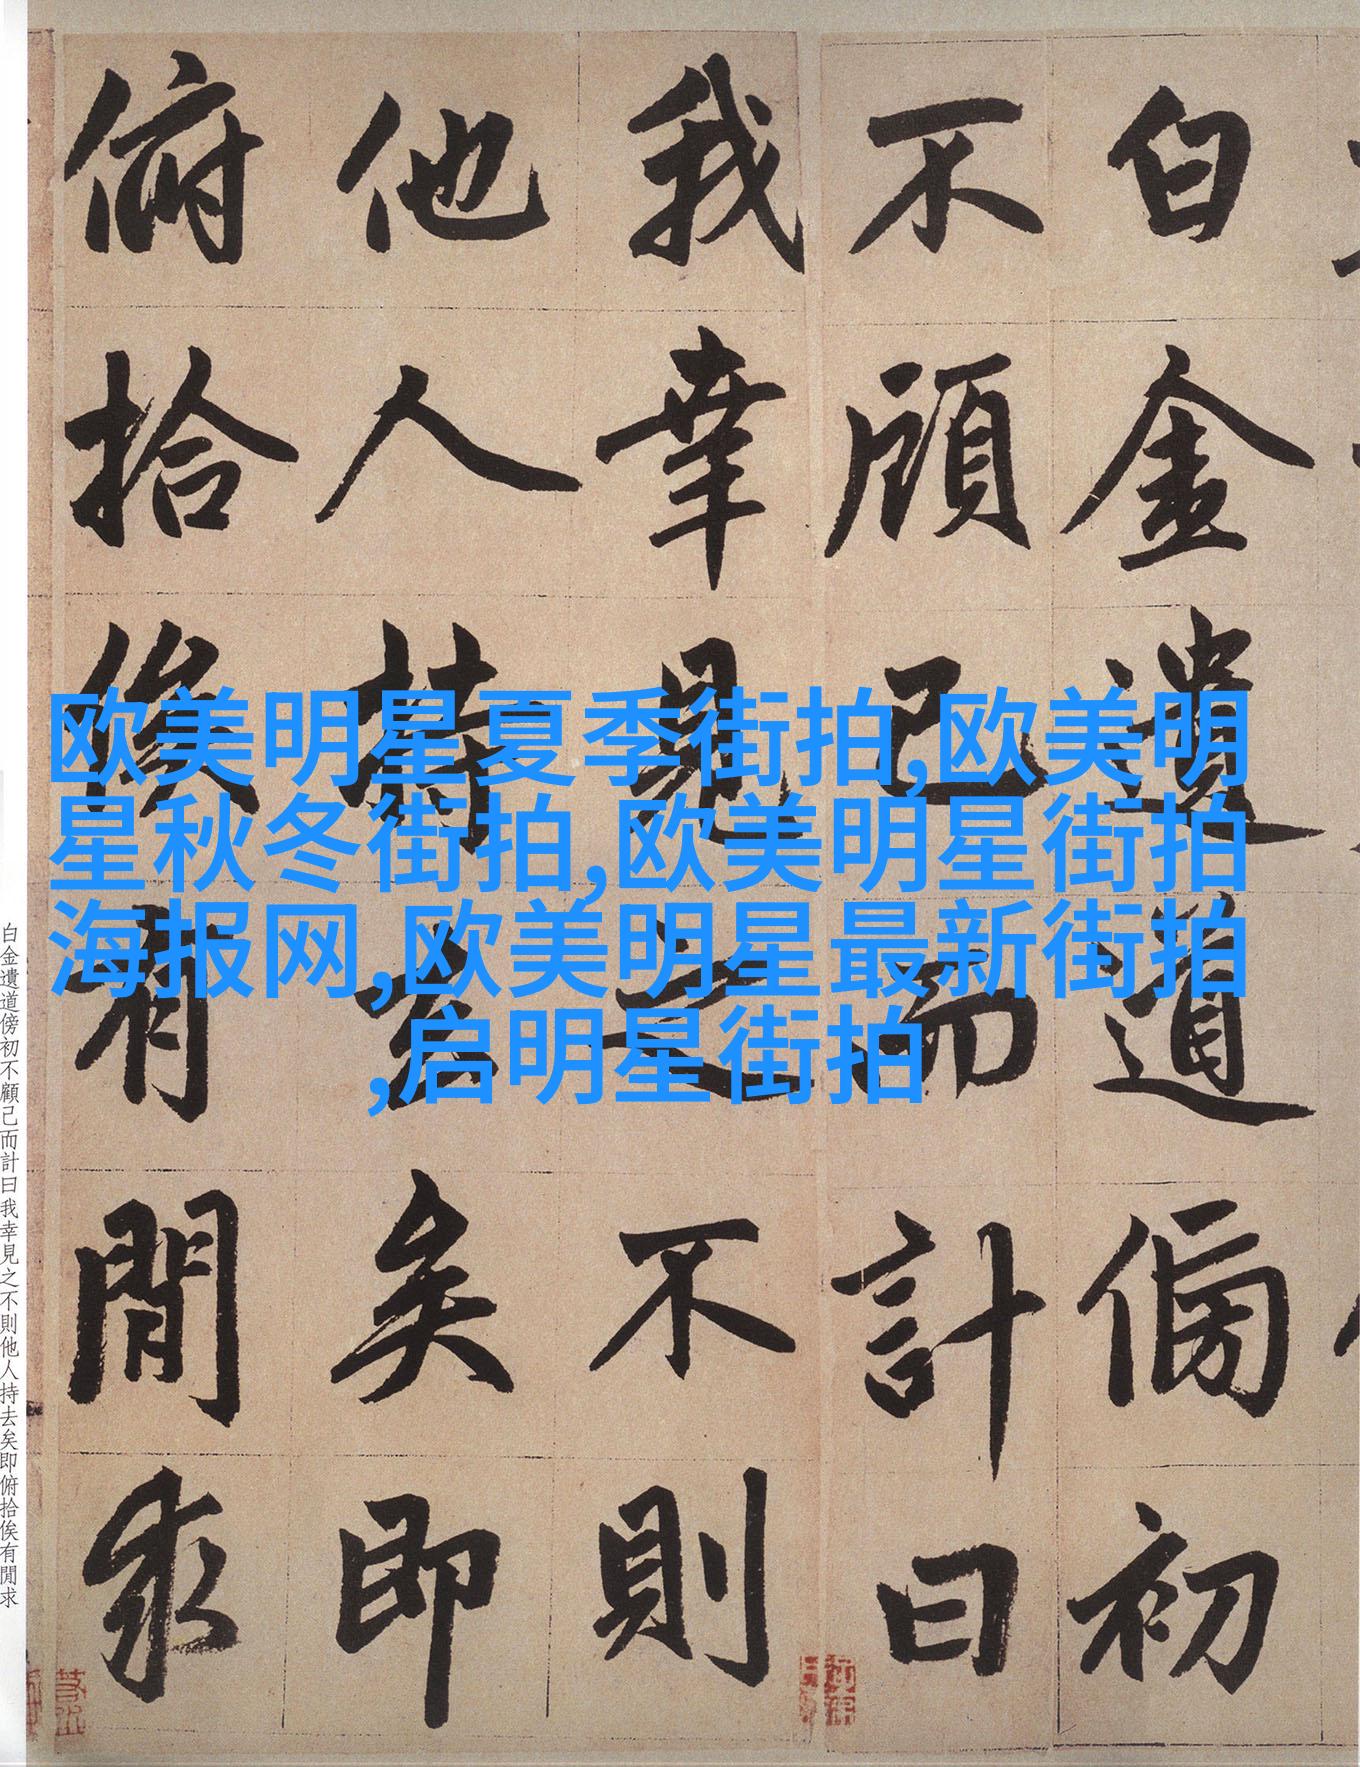 白金遺道傍初
不顧已而計曰
我幸見之不則
他人持去矣即
俯拾俟有閒求
欧美明星夏季街拍,欧美明
星秋冬街拍,欧美明星街拍
海报网,欧美明星最新街拍
,启明星街拍
白金遺道傍初不顧已而計曰我幸見之不則他人持去矣即俯拾俟有閒求